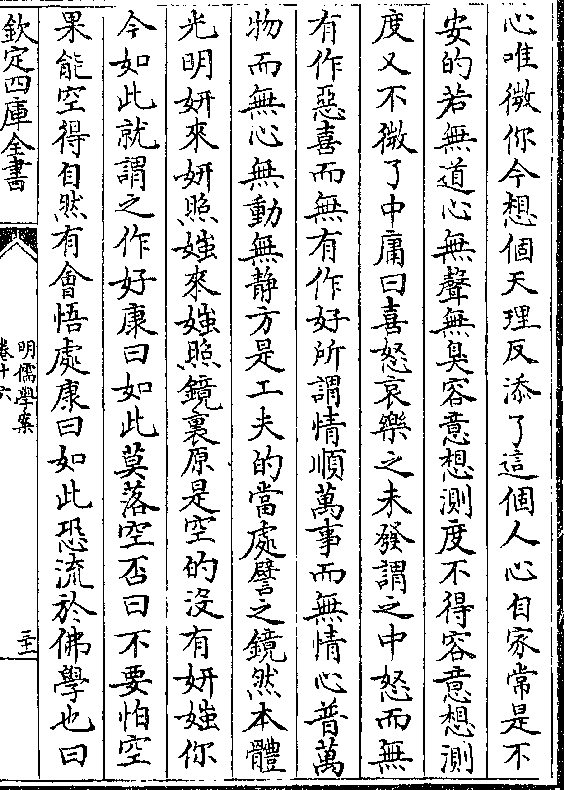 心唯微你今想個天理反添了這個人心自家常是不
安的若無道心無聲無臭容意想測度不得容意想測
度又不微了中庸曰喜怒哀樂之未發謂之中怒而無
有作惡喜而無有作好所謂情順萬事而無情心普萬
物而無心無動無静方是工夫的當處譬之鏡然本體
光明妍來妍照媸來媸照鏡裏原是空的没有妍媸你
今如此就謂之作好康曰如此莫落空否曰不要怕空
果能空得自然有㑹悟處康曰如此恐流於佛學也曰
欽定四庫全書
明儒學案
卷十六